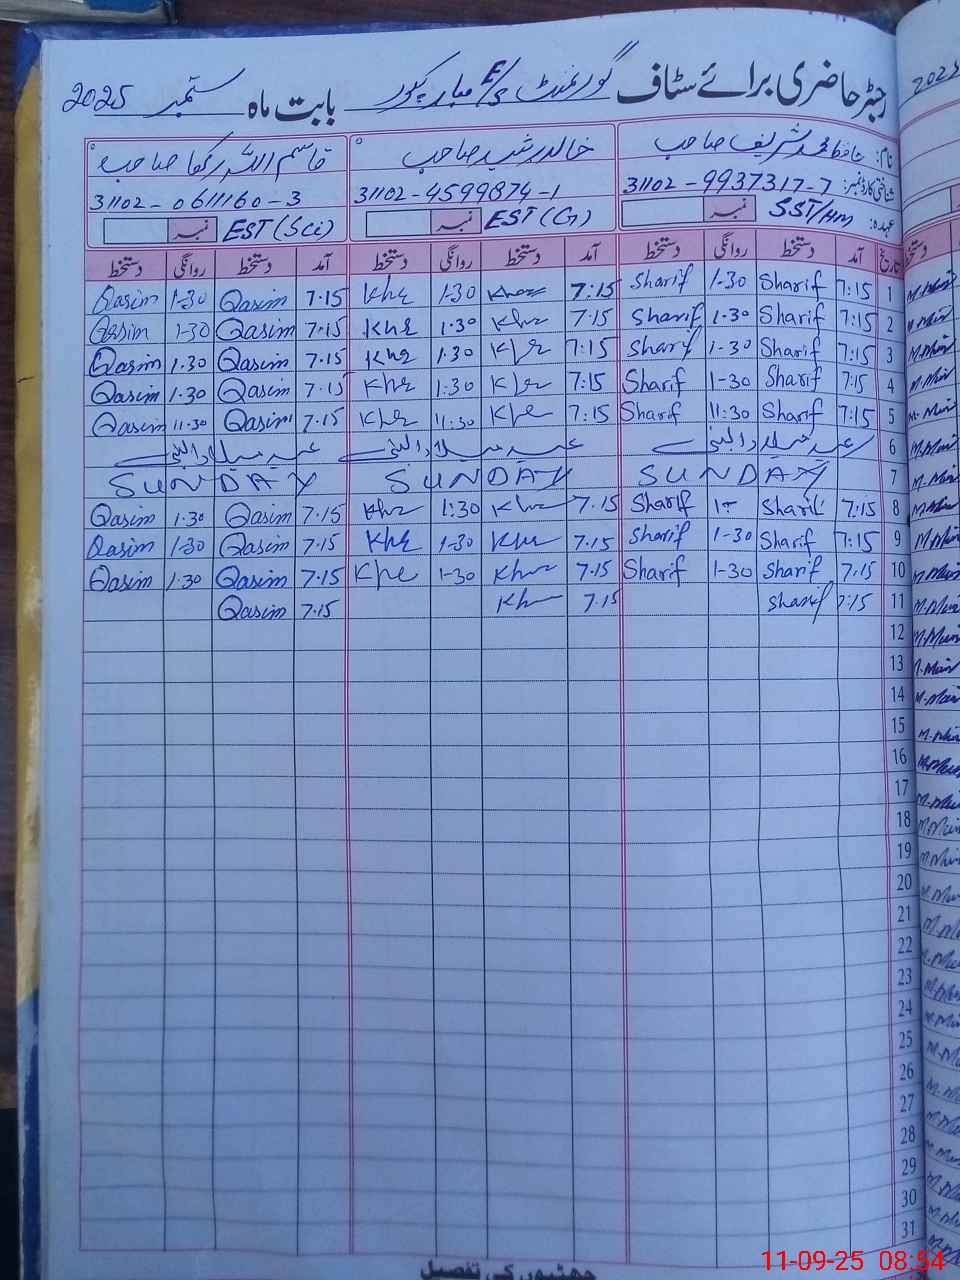 رجسٹر حاضری برائے سٹاف گورنمنٹ E/S مبارکپور بابت ماہ ستمبر 2025
نام: حافظ محمد شریف صاحب خالد رشید صاحب قاسم اللہ رکھا صاحب
شناختی کارڈ نمبر: 31102-9937317-7 31102-4599874-1 31102-0611160-3
عہدہ: SST/HM نمبر EST(G) نمبر EST(Sci) نمبر
تاریخ آمد دستخط روانگی دستخط آمد دستخط روانگی دستخط آمد دستخط روانگی دستخط
1 7:15 Sharif 1-30 Sharif 7:15 1-30 Khe 7.15 Qasim 1-30 Qasim
2 7:15 Sharif 1-30 Sharif 7:15 Khe 1.30 Khe 7.15 Qasim 1-30 Qasim
3 7:15 Sharif 1-30 Sharif 7:15 Khe 1.30 Khe 7.15 Qasim 1.30 Qasim
4 7:15 Sharif 1-30 Sharif 7:15 Khe 1:30 Khe 7.15 Qasim 1.30 Qasim
5 7:15 Sharif 11:30 Sharif 7:15 Khe 11:30 Khe 7.15 Qasim 11.30 Qasim
6 عید میلاد النبی عید میلاد النبی عید میلاد النبی
7 SUNDAY SUNDAY SUNDAY
8 7:15 Sharif 1- Sharif 7.15 Khe 1:30 Khe 7.15 Qasim 1.30 Qasim
9 7:15 Sharif 1-30 Sharif 7.15 Khe 1-30 Khe 7.15 Qasim 1-30 Qasim
10 7:15 Sharif 1-30 Sharif 7.15 Khe 1-30 Khe 7.15 Qasim 1.30 Qasim
11 7:15 Sharif 7.15 Kh 7.15 Qasim
12
13
14
15
16
17
18
19
20
21
22
23
24
25
26
27
28
29
30
31
چھٹیوں کی تفصیل
11-09-25 08:54